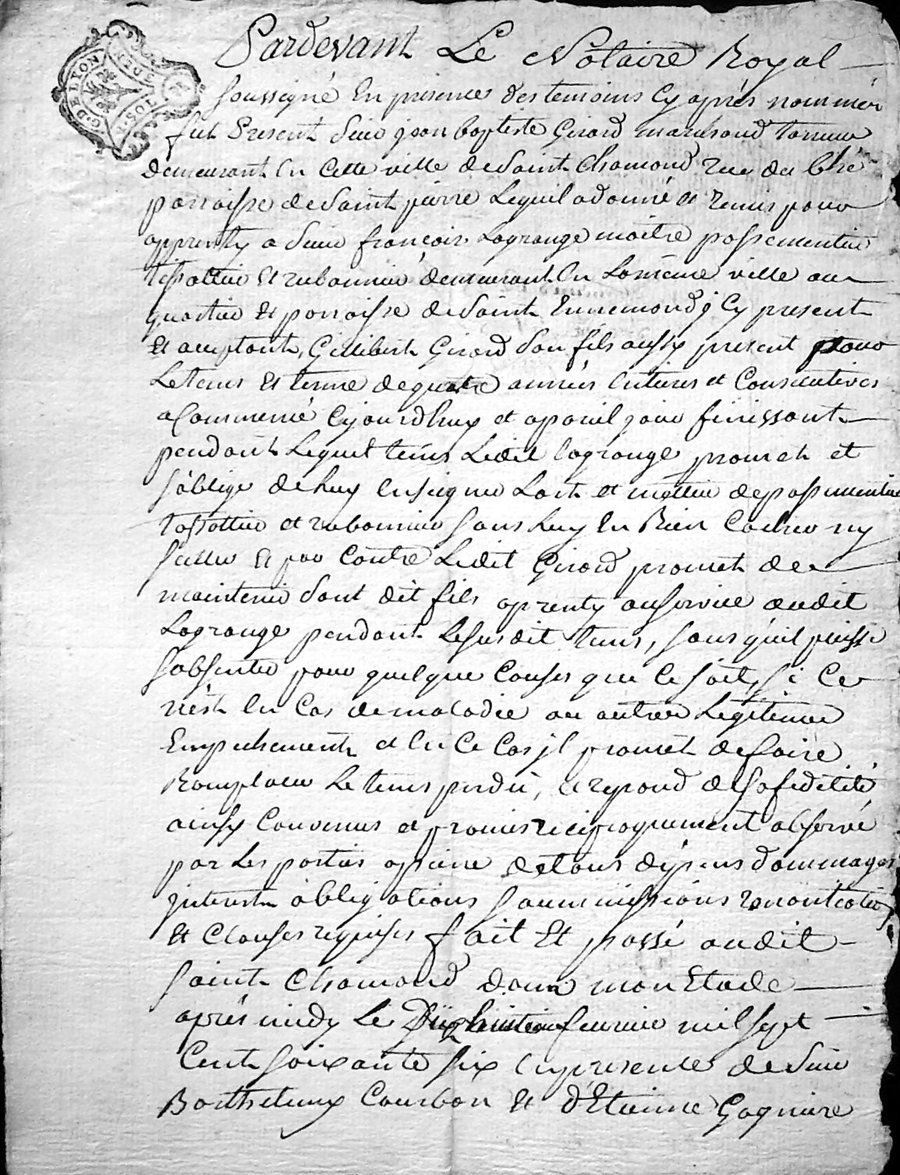 G. DE LYON
1. SOL
Pardevant Le Notaire Royal
soussigné En presence des temoins Cy après nommés
fut Present sieur jean baptiste Girard marchand
demeurant En cette ville de Saint Chamond rue du
paroisse de Saint pierre Lequel a donné et remis pour
apprenty a sieur francois Lagrange maitre possementier
tissottier et rubannier demeurant En La meme ville au
quartier et paroisse de Saint Ennemond, jCy present
Et aceptant, Gillibert Girard son fils aussy present pour
Le tems et terme de quatre années Entieres et Consecutives
a Commencé Cejourdhuy et apareil jour finissant
pendant Lequel tems Ledit lagrange promet et
soblige de luy Enseigner Lart et mettier de possementier
tissottier et rubannier sans luy En Rien Cacher ny
Celler et par Contre Ledit Girard promet de
maintenir sont dit fils aprenty au service dudit
Lagrange pendant Le susdit tems, sans quil puisse
sabsenter pour quelque Causes que Ce soit, si Ce
nest En Cas de maladie ou autres Legitimes
Empechement et En Ce Cas jl promet de faire
Remplacer Le tems perdu, et repond de sa fidelité
ainsy Convenus et promis reciproquement observé
par Les parties apeine de tous depens dommages
jnterest obligations soummissions renontiations
et Clauses requises fait Et passé audit
Saint Chamond dans mon Etude
après midy Le Dixhuitieme fevrier mil sept
Cent soixante six En presence de sieur
Barthelemy Courbon et d'Etienne Gagniere